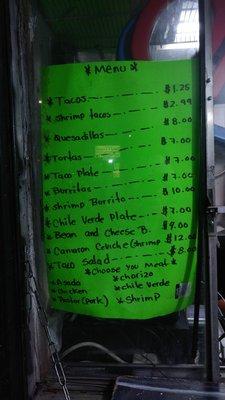 * Menu *
* Tacos $1.25
* Shrimp tacos $2.99
* Quesadillas $8.00
* Tortas $7.00
* Taco Plate $7.00
* Burritas $7.00
* Shrimp Burrito $10.00
* Chile Verde Plate $7.00
* Bean and Cheese B. $4.00
* Camaron Cebiche (shrimp $12.00
* Taco Salad $8.00
* Choose you Meat *
* Asada * chorizo
* Chicken * chile Verde
* Pastor (Pork) * Shrimp